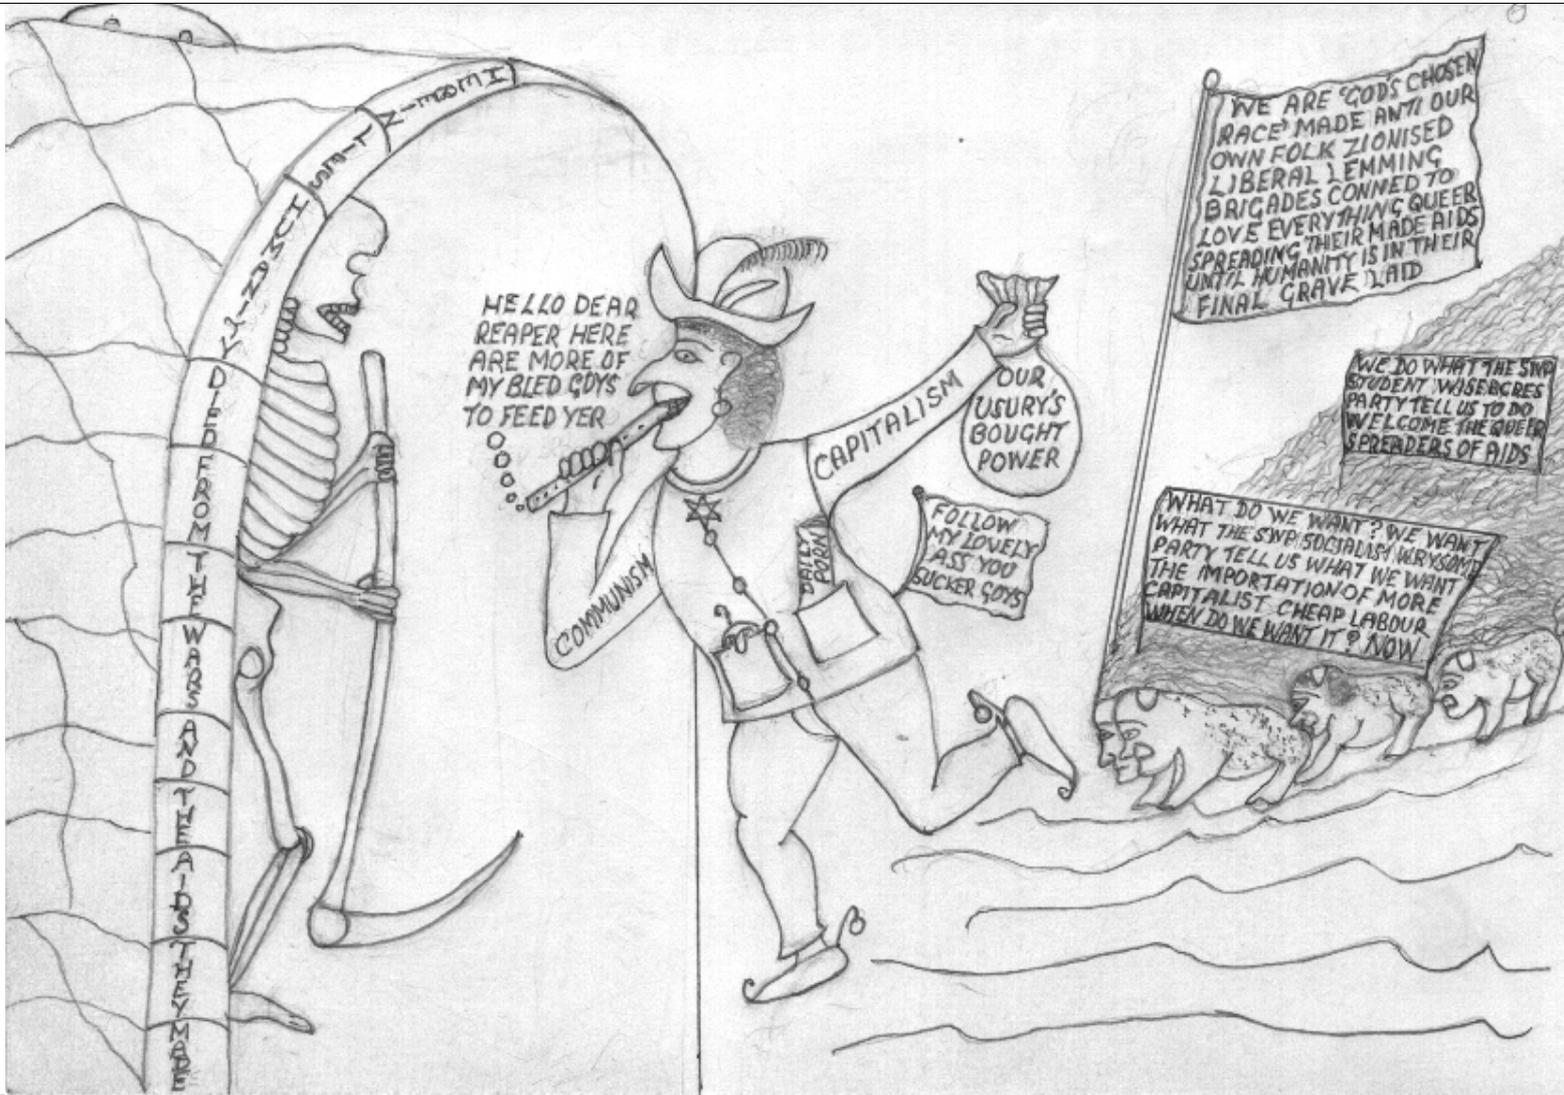 HEREIN
LIES
HUMANITY
DIED
FROM
THE
WARS
AND
THE
AIDS
THEY
MADE
HELLO DEAR
REAPER HERE
ARE MORE OF
MY BLED GOYS
TO FEED YER
COMMUNISM
CAPITALISM
OUR
USURY'S
BOUGHT
POWER
DAILY
PORN
FOLLOW
MY LOVELY
ASS YOU
SUCKER GOYS
WE ARE 'GOD'S CHOSEN
RACE' MADE ANTI OUR
OWN FOLK ZIONISED
LIBERAL LEMMING
BRIGADES CONNED TO
LOVE EVERYTHING QUEER
SPREADING THEIR MADE AIDS
UNTIL HUMANITY IS IN THEIR
FINAL GRAVE LAID
WE DO WHAT THE SWP
STUDENT
PARTY TELL US TO DO
WELCOME THE QUEER
SPREADERS OF AIDS
WHAT DO WE WANT? WE WANT
WHAT THE SWP SOCIALIST
PARTY TELL US WHAT WE WANT
THE IMPORTATION OF MORE
CAPITALIST CHEAP LABOUR
WHEN DO WE WANT IT? NOW